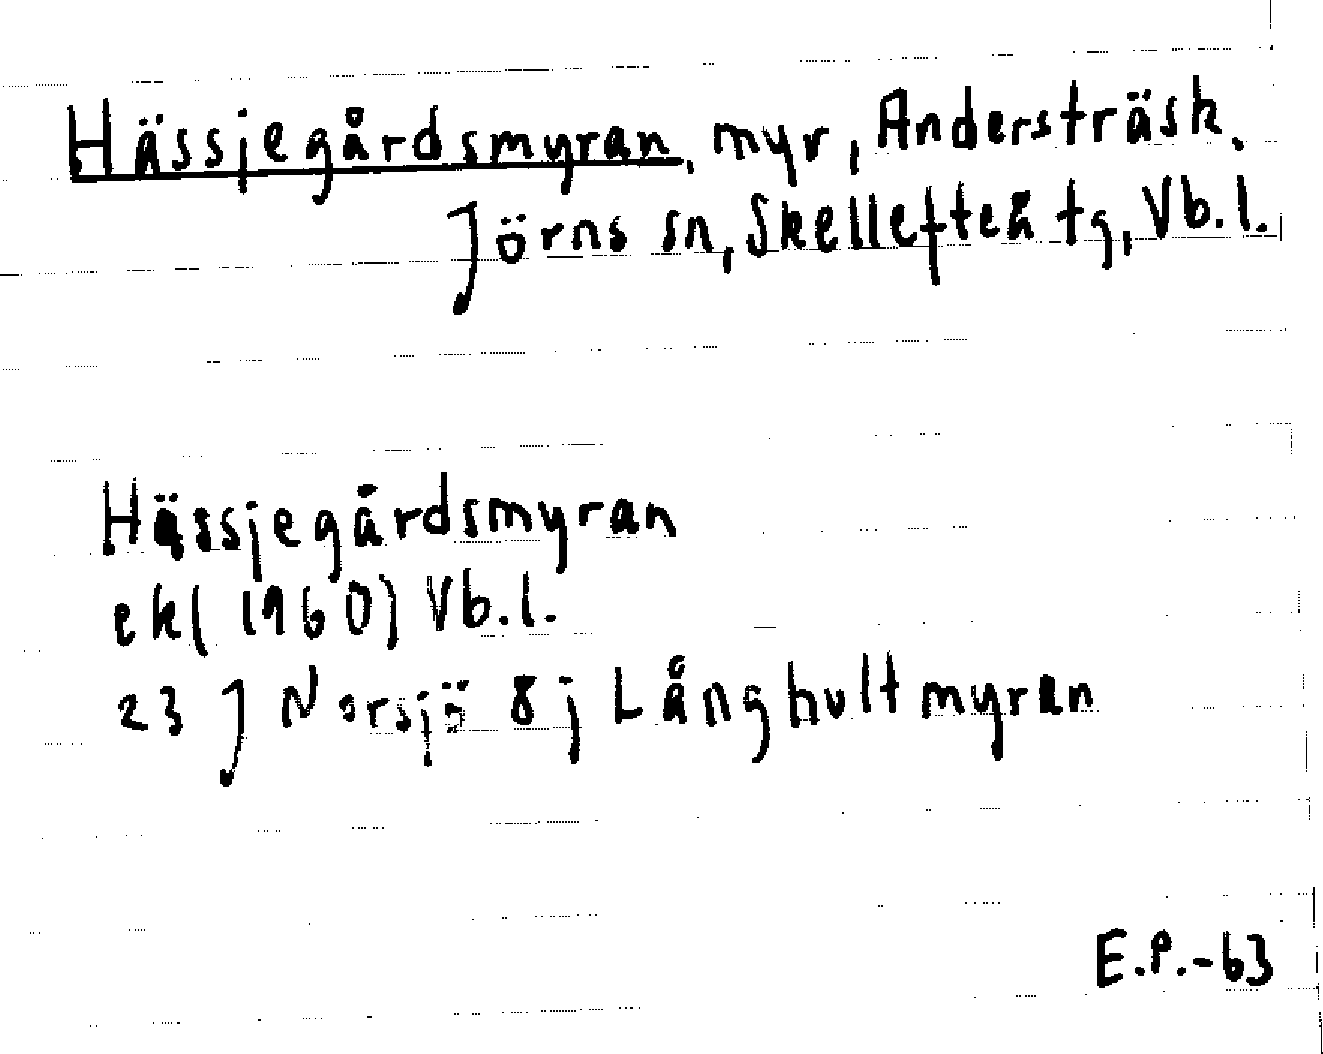 Hässjegårdsmyran, myr, Andersträsk,
Jörns sn, Skellefteå tg, Vb.l.
Hässjegårdsmyran
ek (1960) Vb.l.
23 J Norsjö 8j Långhultmyran
E.P.-63